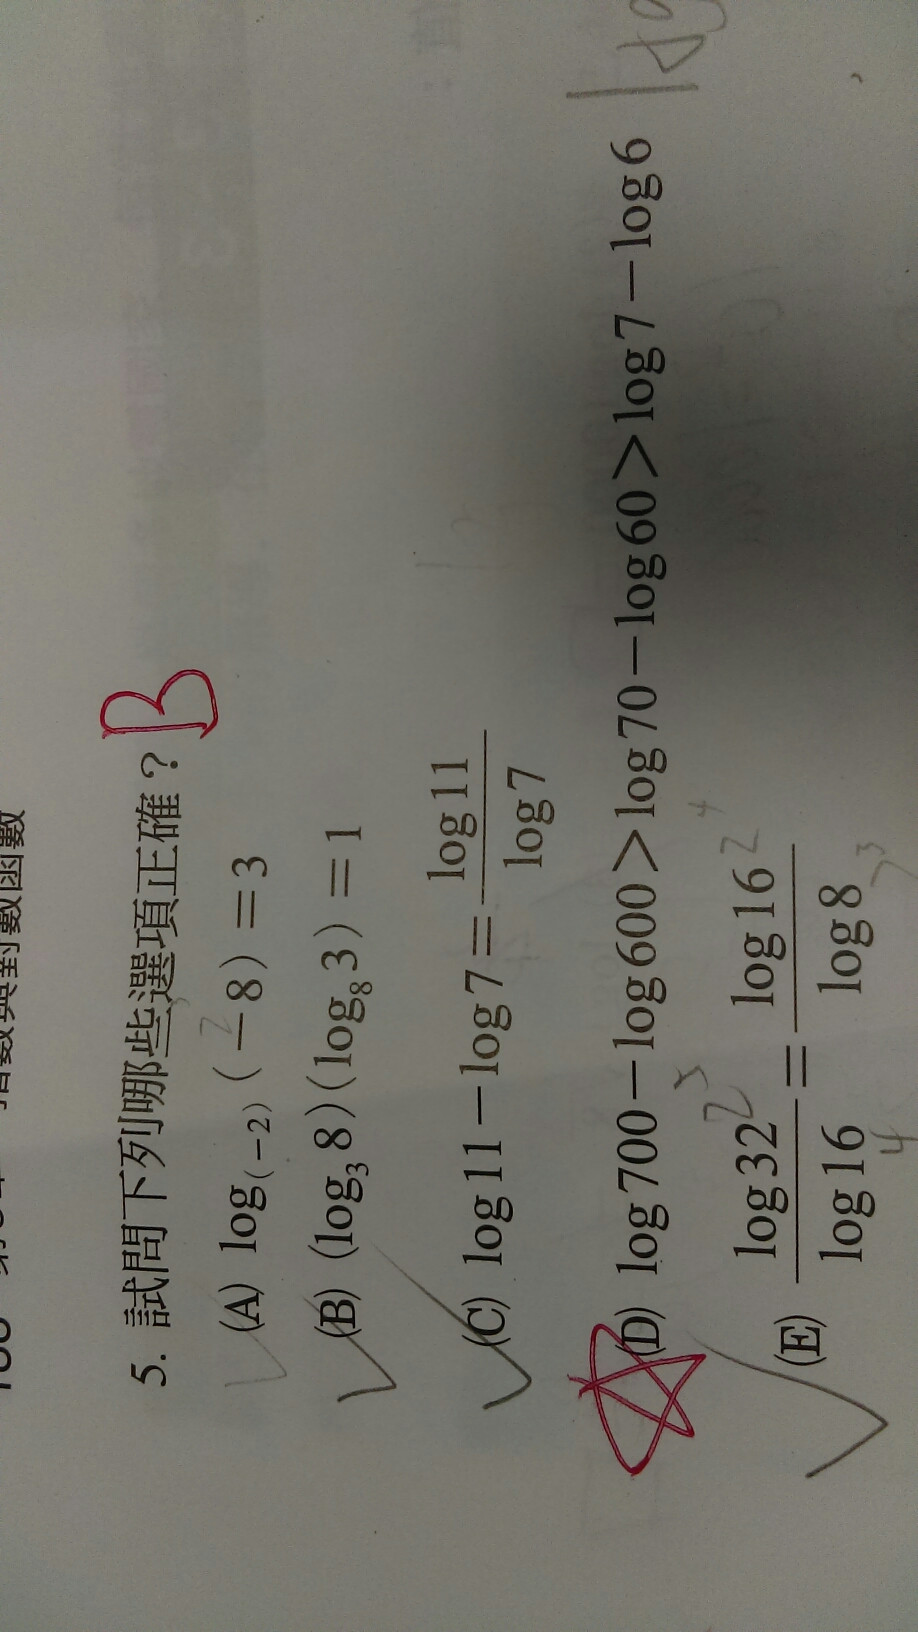 指數與對數函數
5. 試問下列哪些選項正確？ B
(A) log₍₋₂₎(−8)＝3
(B) (log₃8)(log₈3)＝1
(C) log11−log7＝log11/log7
(D) log700−log600＞log70−log60＞log7−log6
(E) log32/log16＝log16/log8